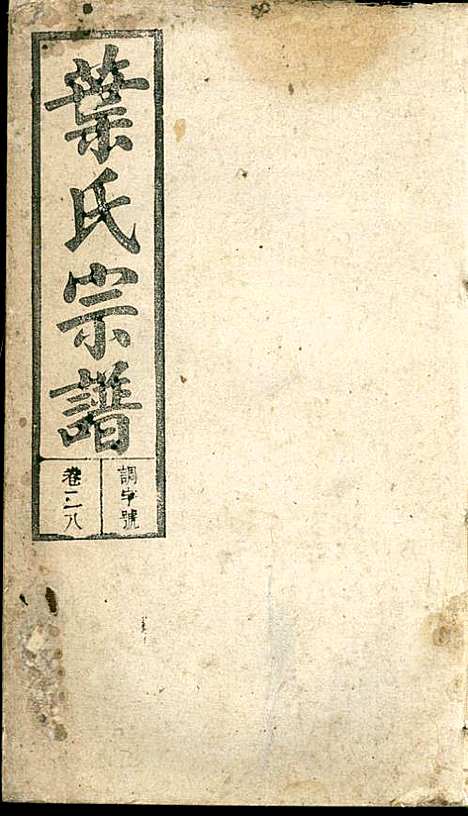 葉氏宗譜
調字號
卷二八